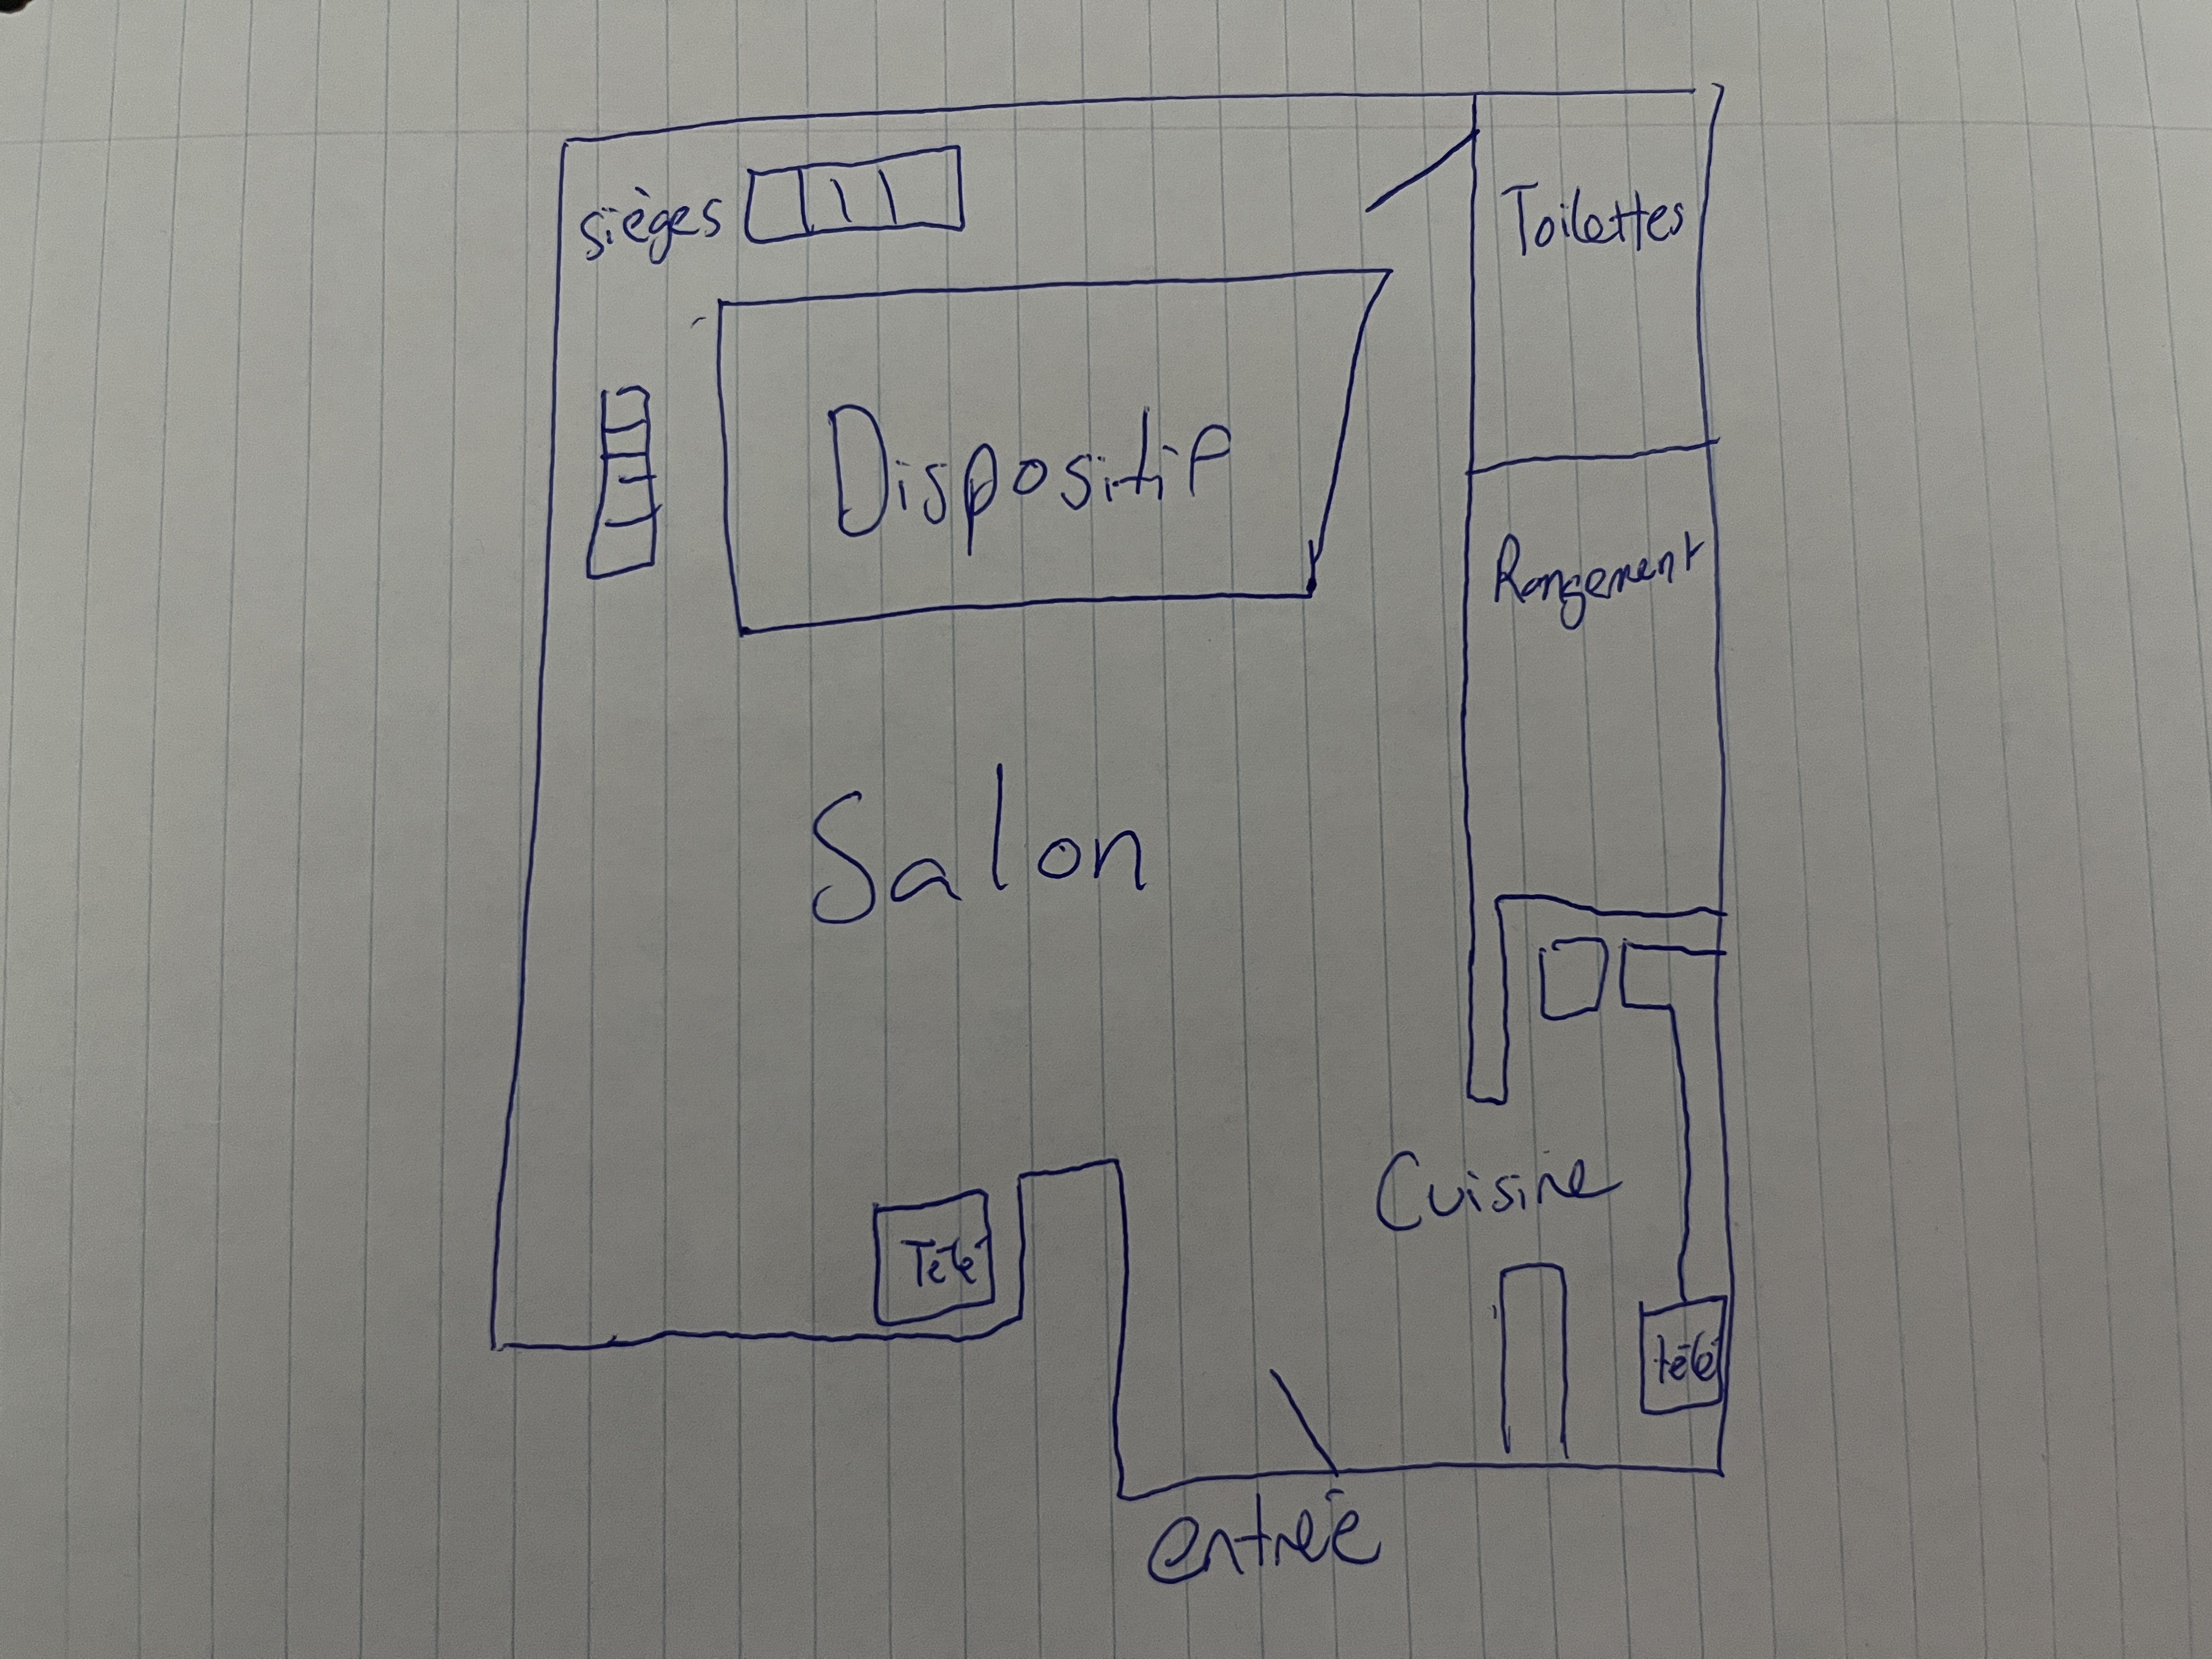 sièges
Toilettes
Dispositif
Rangement
Salon
Cuisine
Télé
télé
entrée